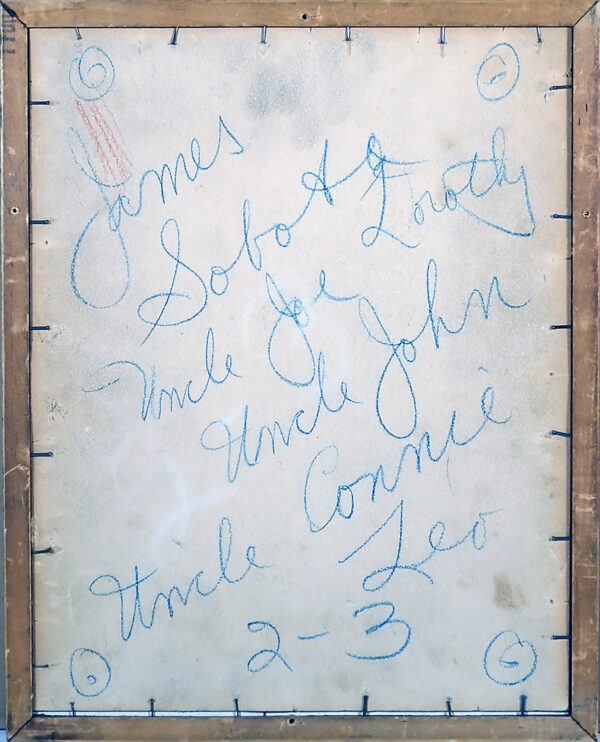 6 6
James
Sobota & Dorothy
Uncle Joe
Uncle John
Connie
Uncle Leo
2-3
6 6